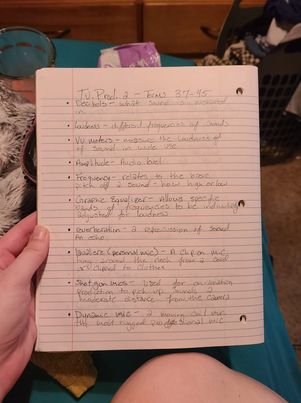 T.V. Prod. 2 - Terms 37-45
• Decibels - what sound is measured
in
• Loudness - different frequencies of sounds
• VU meters - measure the loudness
of sound in
• Amplitude - Audio level
• Frequency - relates to the basic
pitch of a sound - how high or low
• Graphic Equalizer - Allows specific
bands of frequencies to be individually
adjusted for loudness
• Reverberation - a repercussion of sound
An echo
• (personal mic) - A clip on mic
hung around the neck from a cord
or clipped to clothes
• Shotgun mics - Used for on-location
production to pick up sounds a
moderate distance from the camera
• Dynamic mic - a moving coil mic
the most rugged professional mic